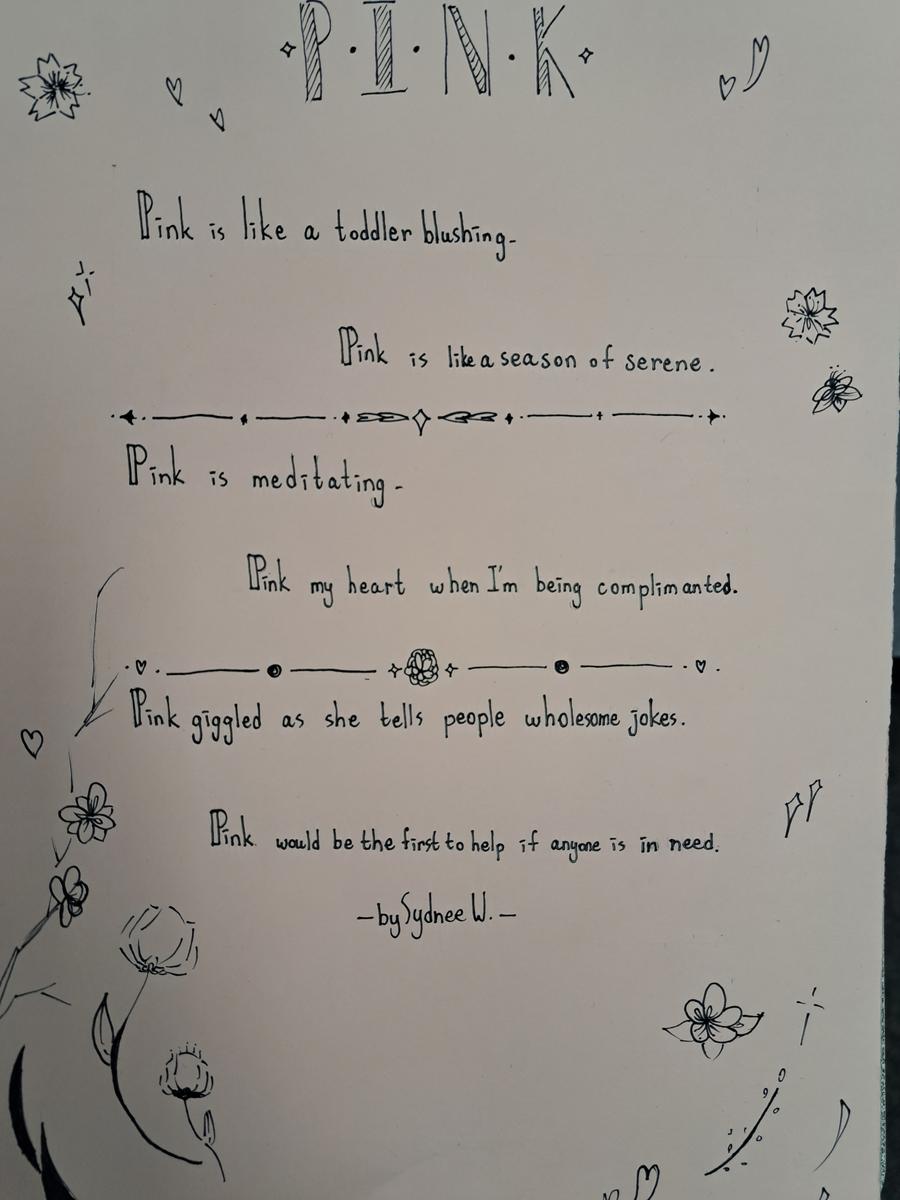 P·I·N·K
Pink is like a toddler blushing-
Pink is like a season of serene.
Pink is meditating-
Pink my heart when I'm being complimanted.
Pink giggled as she tells people wholesome jokes.
Pink would be the first to help if anyone is in need.
—by Sydnee W.—